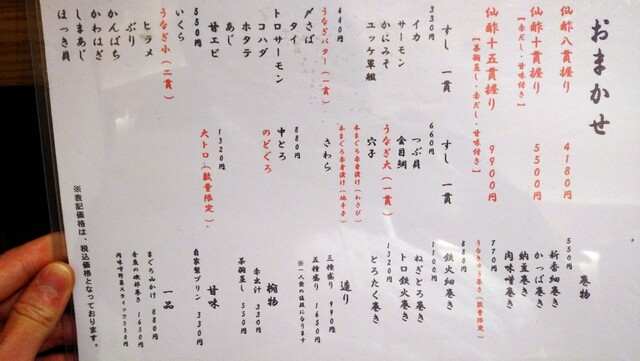 おまかせ
仙酢八貫握り 4180円
［赤だし・甘味付き］
仙酢十貫握り 5500円
［赤だし・甘味付き］
仙酢十五貫握り 9900円
［茶碗蒸し・赤だし・甘味付き］
すし 一貫
330円
イカ
サーモン
かにみそ
ユッケ軍艦
440円
うなぎバター(一貫)
〆さば
タイ
トロサーモン
コハダ
ホタテ
あじ
甘エビ
550円
いくら
うなぎ小(二貫)
ヒラメ
ぶり
かんぱち
かわはぎ
しまあじ
ほっき貝
すし 一貫
660円
つぶ貝
金目鯛
うなぎ大(一貫)
穴子
本まぐろ赤身漬け(わさび)
本まぐろ赤身漬け(地辛子)
さわら
880円
中とろ
のどぐろ
1320円
大トロ(数量限定)
巻物
550円
新香細巻き
かっぱ巻き
納豆巻き
肉味噌巻き
770円
うなきゅう巻き(数量限定)
880円
鉄火細巻き
1100円
ねぎとろ巻き
トロ鉄火巻き
1320円
とろたく巻き
造り
三種盛り 990円
五種盛り 1650円
※一人前の値段になります
椀物
赤出汁 330円
茶碗蒸し 550円
甘味
自家製プリン 330円
一品
まぐろ山かけ 880円
青豆の磯部巻き 1650円
肉味噌野菜スティック 550円
※表記価格は、税込価格となっております。